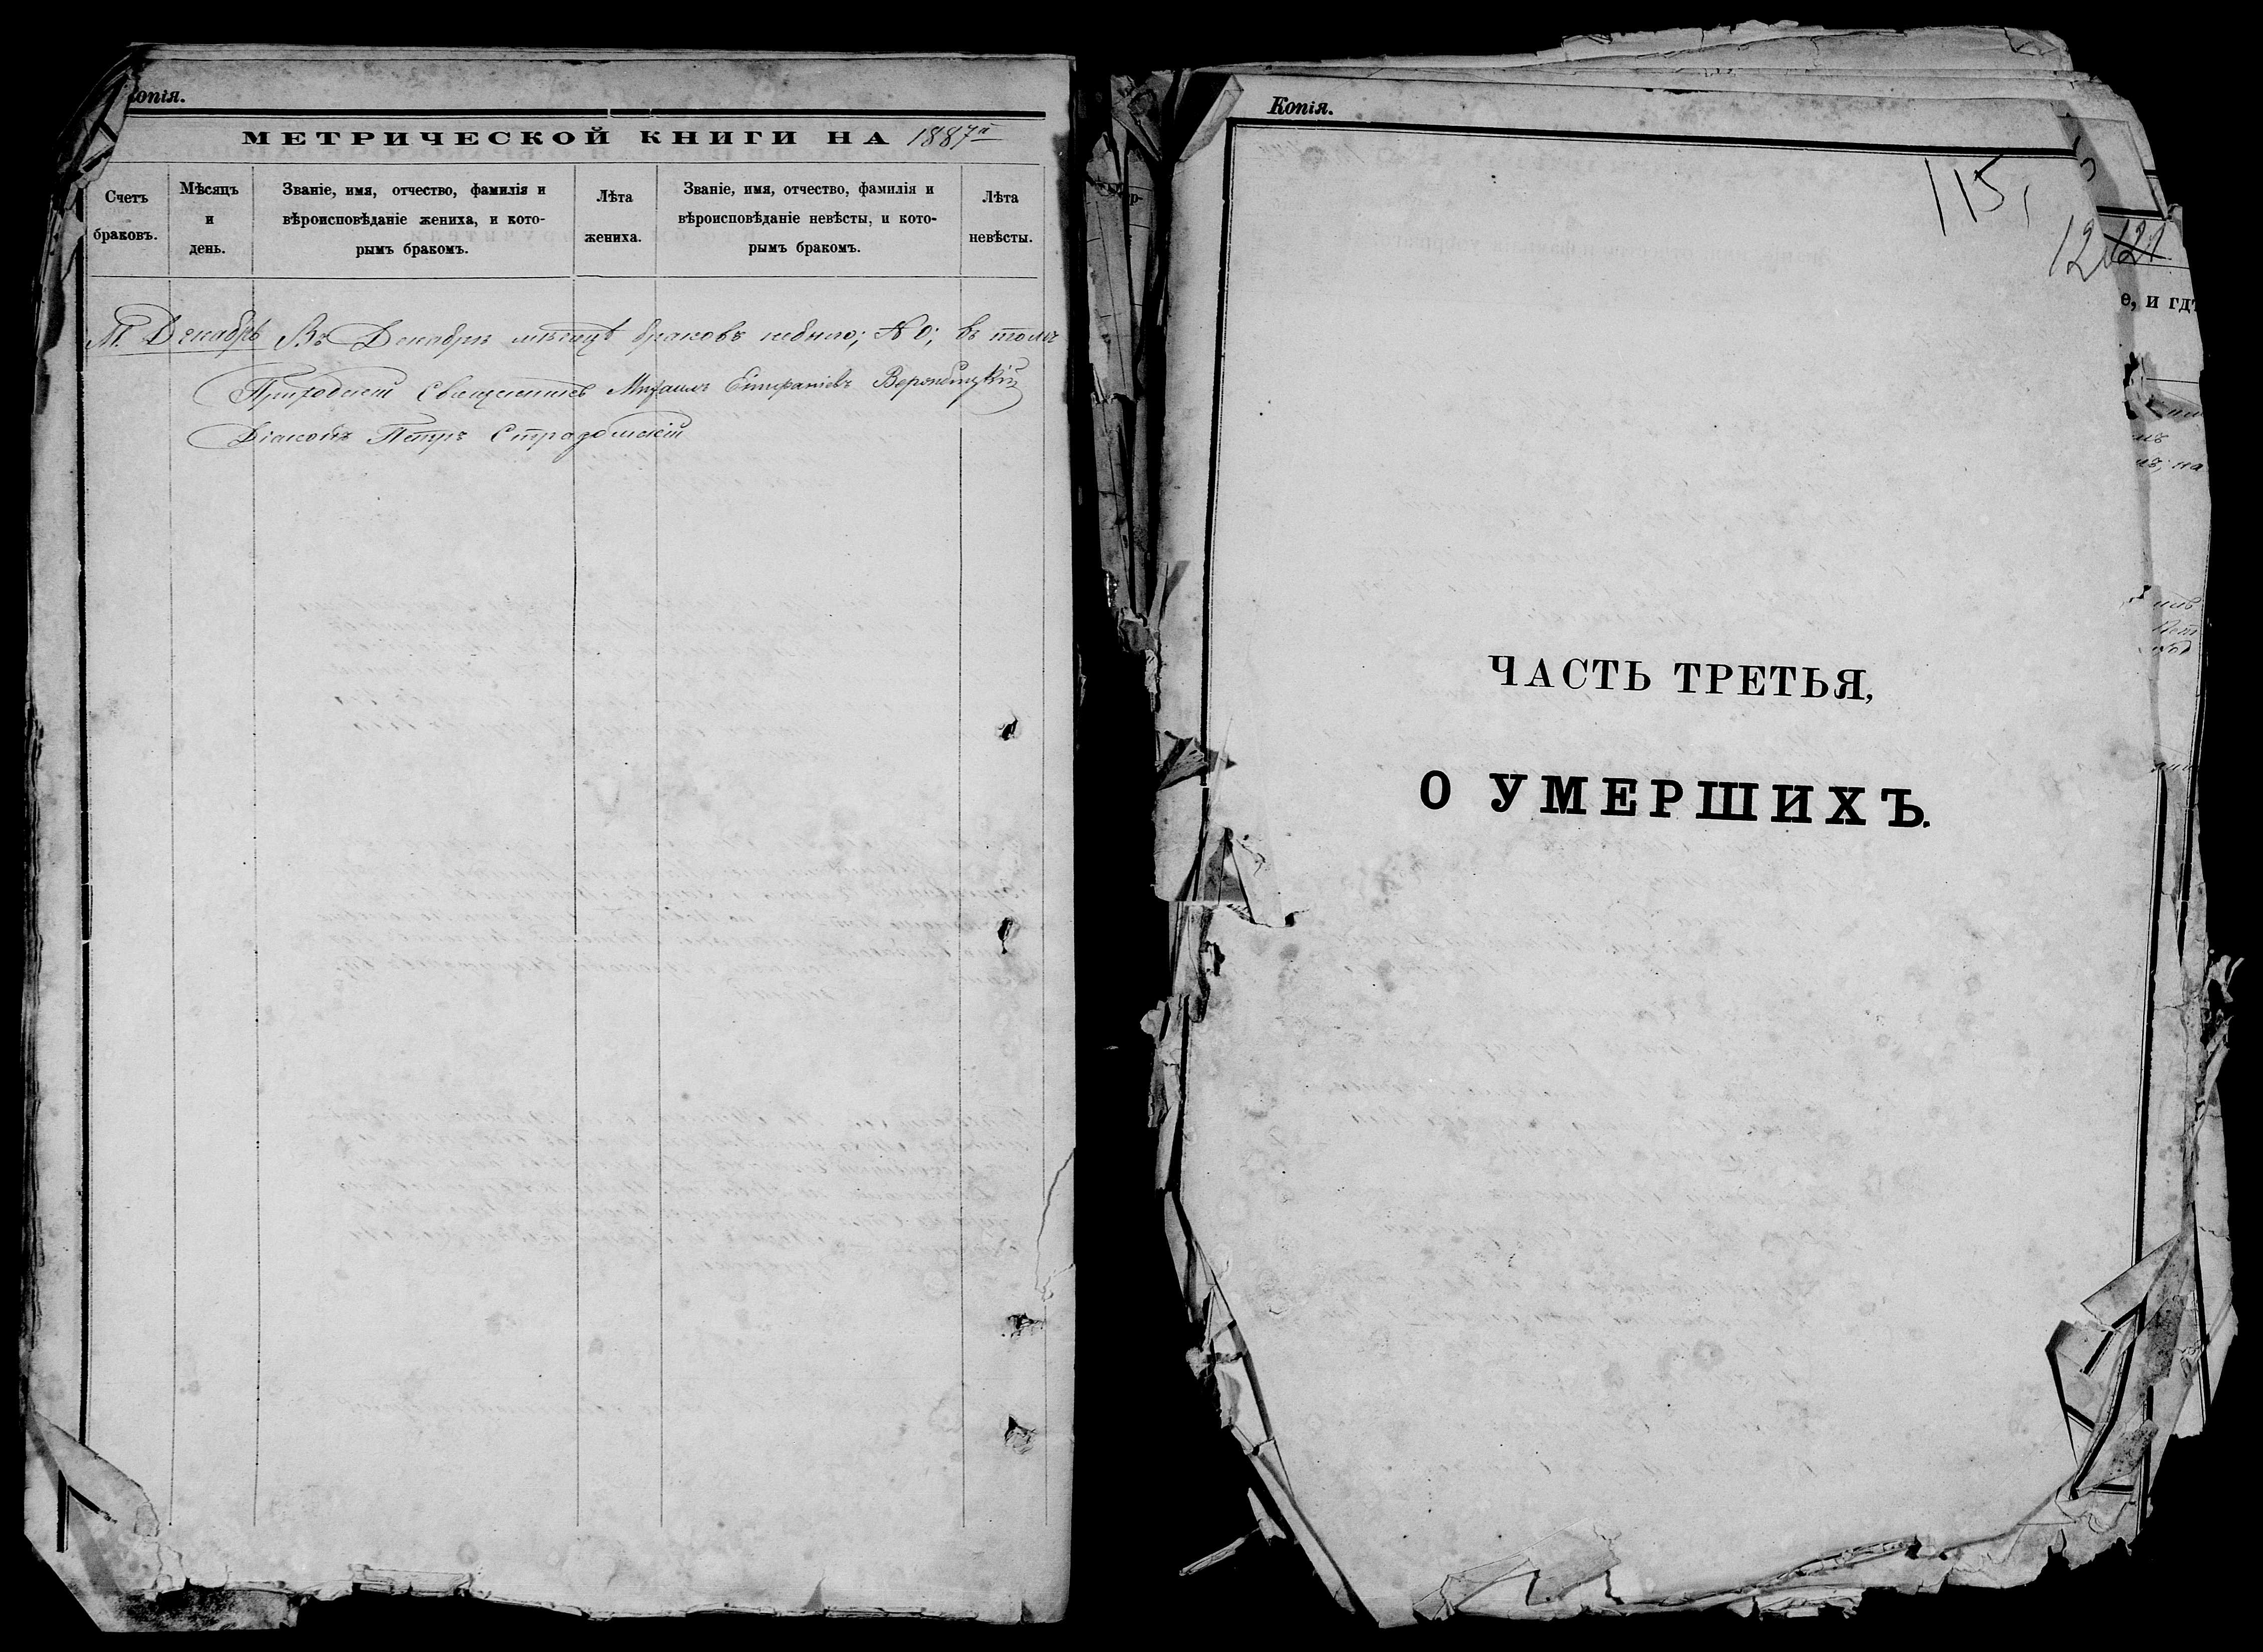 Копія.
МЕТРИЧЕСКОЙ КНИГИ НА 1887й
Счетъ браковъ.
Мѣсяцъ и день.
Званіе, имя, отчество, фамилія и
вѣроисповѣданіе жениха, и кото-
рымъ бракомъ.
Лѣта жениха.
Званіе, имя, отчество, фамилія и
вѣроисповѣданіе невѣсты, и кото-
рымъ бракомъ.
Лѣта невѣсты.
М. Декабрь Въ Декабрѣ мѣсяцѣ браковъ небыло; № 0; въ томъ
Приходскій Священникъ Михаилъ Епифаніевъ
Діаконъ Петръ
Копія.
115,
12
121
ѳ, и гдѣ
ЧАСТЬ ТРЕТЬЯ,
О УМЕРШИХЪ.